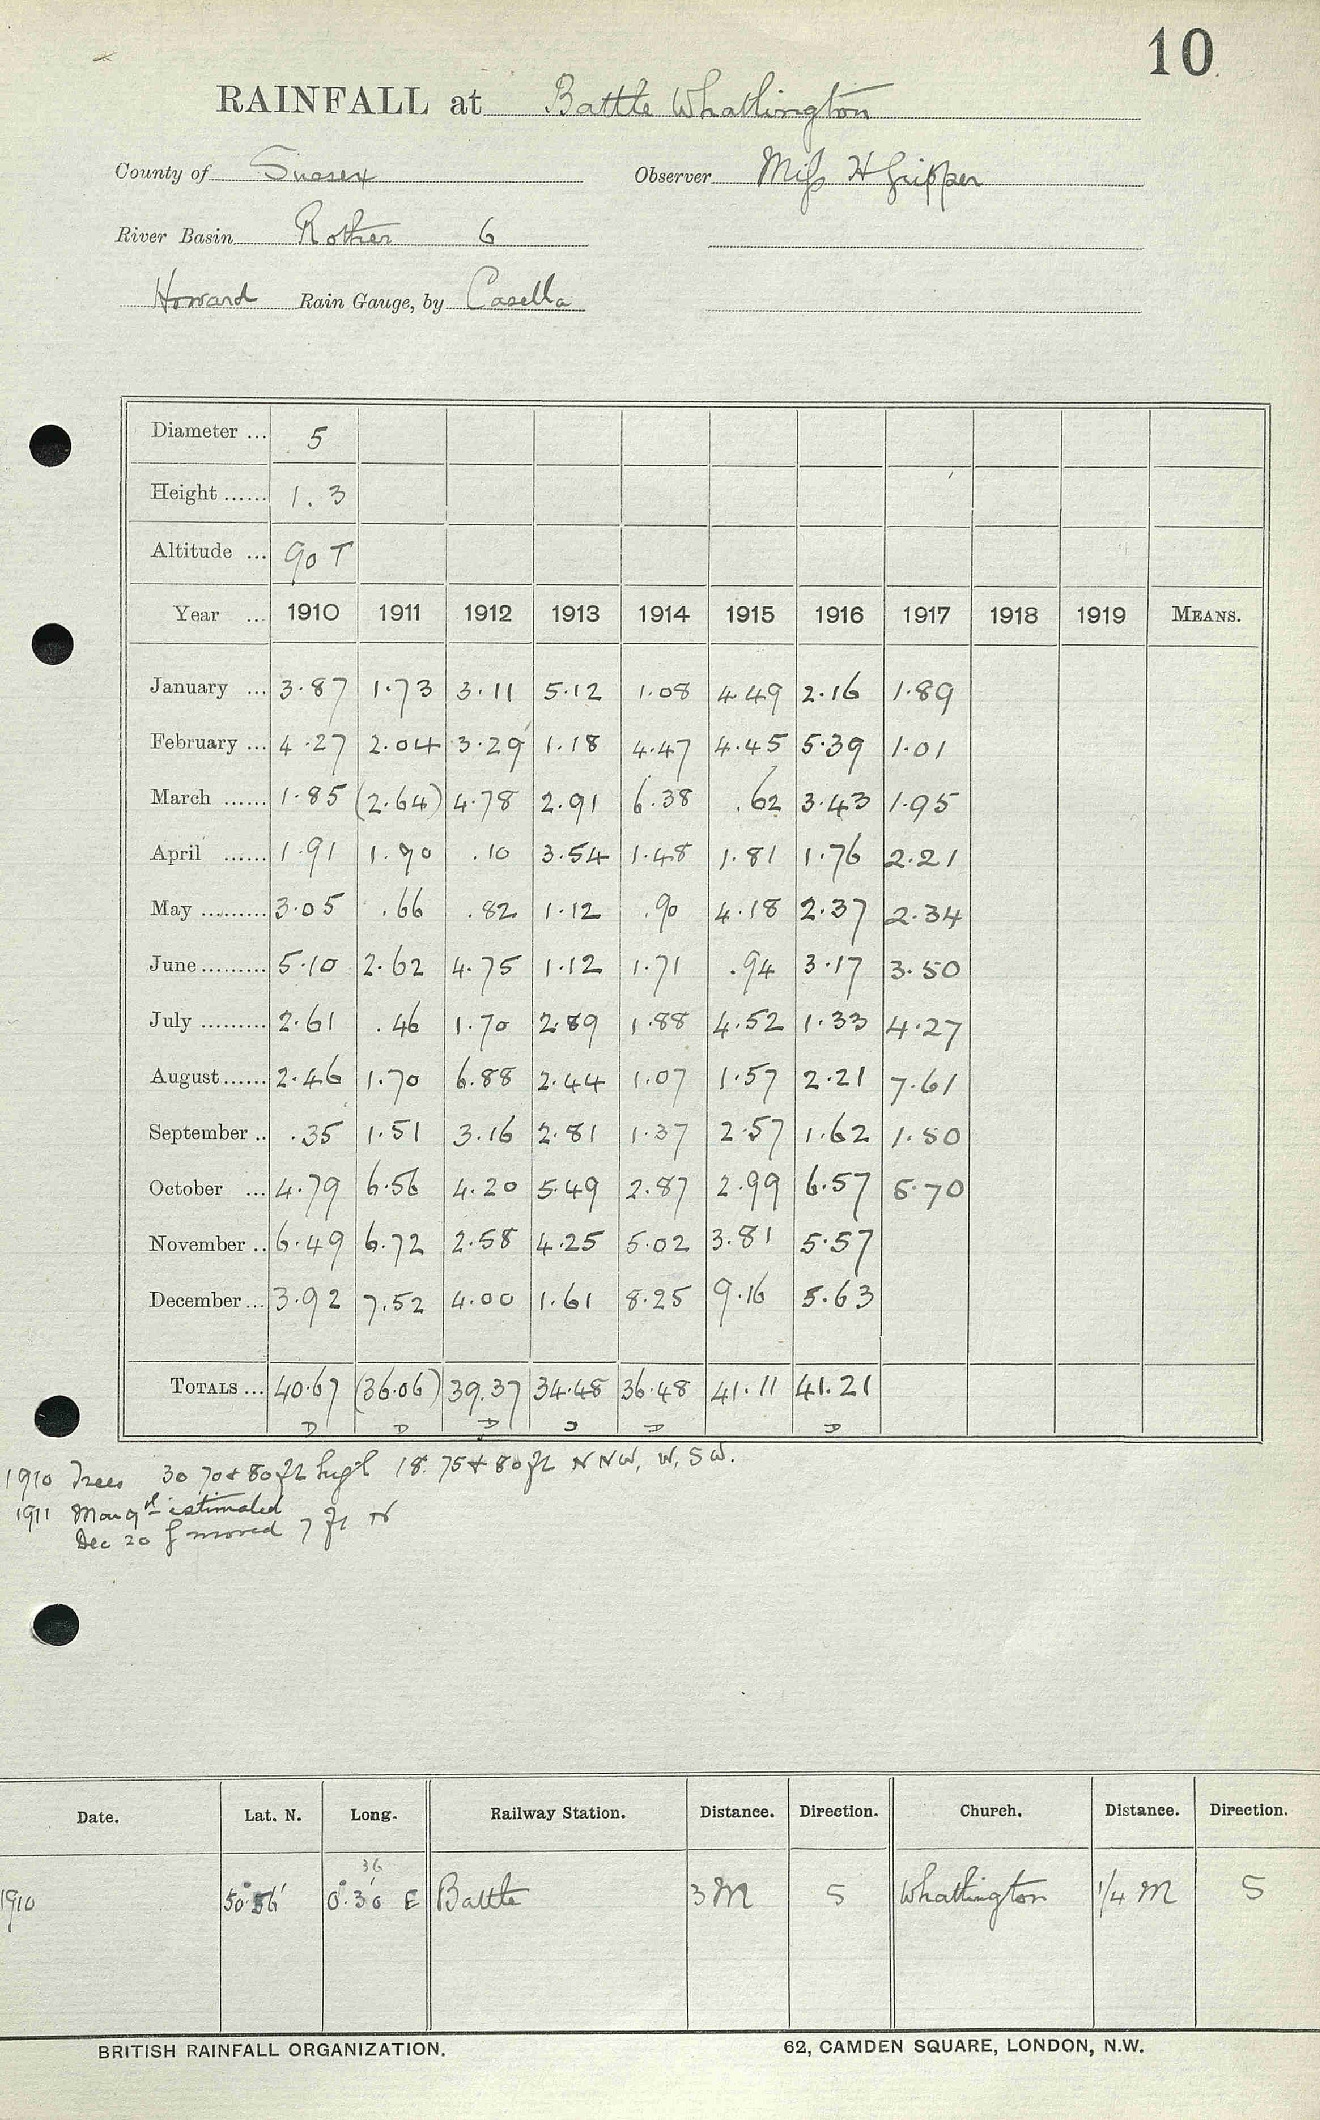 10
RAINFALL at Battle Whatlington
County of Sussex Observer Miss H Gripper
River Basin Rother 6
Howard Rain Gauge, by Casella
Diameter ... 5
Height ...... 1.3
Altitude ... 90 T
Year ... 1910 1911 1912 1913 1914 1915 1916 1917 1918 1919 MEANS.
January ... 3.87 1.73 3.11 5.12 1.08 4.49 2.16 1.89
February ... 4.27 2.04 3.29 1.18 4.47 4.45 5.39 1.01
March ...... 1.85 (2.64) 4.78 2.91 6.38 .62 3.43 1.95
April ...... 1.91 1.90 .10 3.54 1.48 1.81 1.76 2.21
May ......... 3.05 .66 .82 1.12 .90 4.18 2.37 2.34
June ......... 5.10 2.62 4.75 1.12 1.71 .94 3.17 3.50
July ......... 2.61 .46 1.70 2.89 1.88 4.52 1.33 4.27
August ...... 2.46 1.70 6.88 2.44 1.07 1.57 2.21 7.61
September .. .35 1.51 3.16 2.81 1.37 2.57 1.62 1.50
October ... 4.79 6.56 4.20 5.49 2.87 2.99 6.57 5.70
November .. 6.49 6.72 2.58 4.25 5.02 3.81 5.57
December ... 3.92 7.52 4.00 1.61 8.25 9.16 5.63
TOTALS ... 40.67 (36.06) 39.37 34.48 36.48 41.11 41.21
D D D D D
1910 Trees 30 70 & 80 ft high 18. 75 & 80 ft NNW, W, SW.
1911 Mar estimated
Dec 20 moved 7 ft N
Date. Lat. N. Long. Railway Station. Distance. Direction. Church. Distance. Direction.
36
1910 50°56' 0°.30' E Battle 3 M S Whatlington 1/4 M S
BRITISH RAINFALL ORGANIZATION. 62, CAMDEN SQUARE, LONDON, N.W.